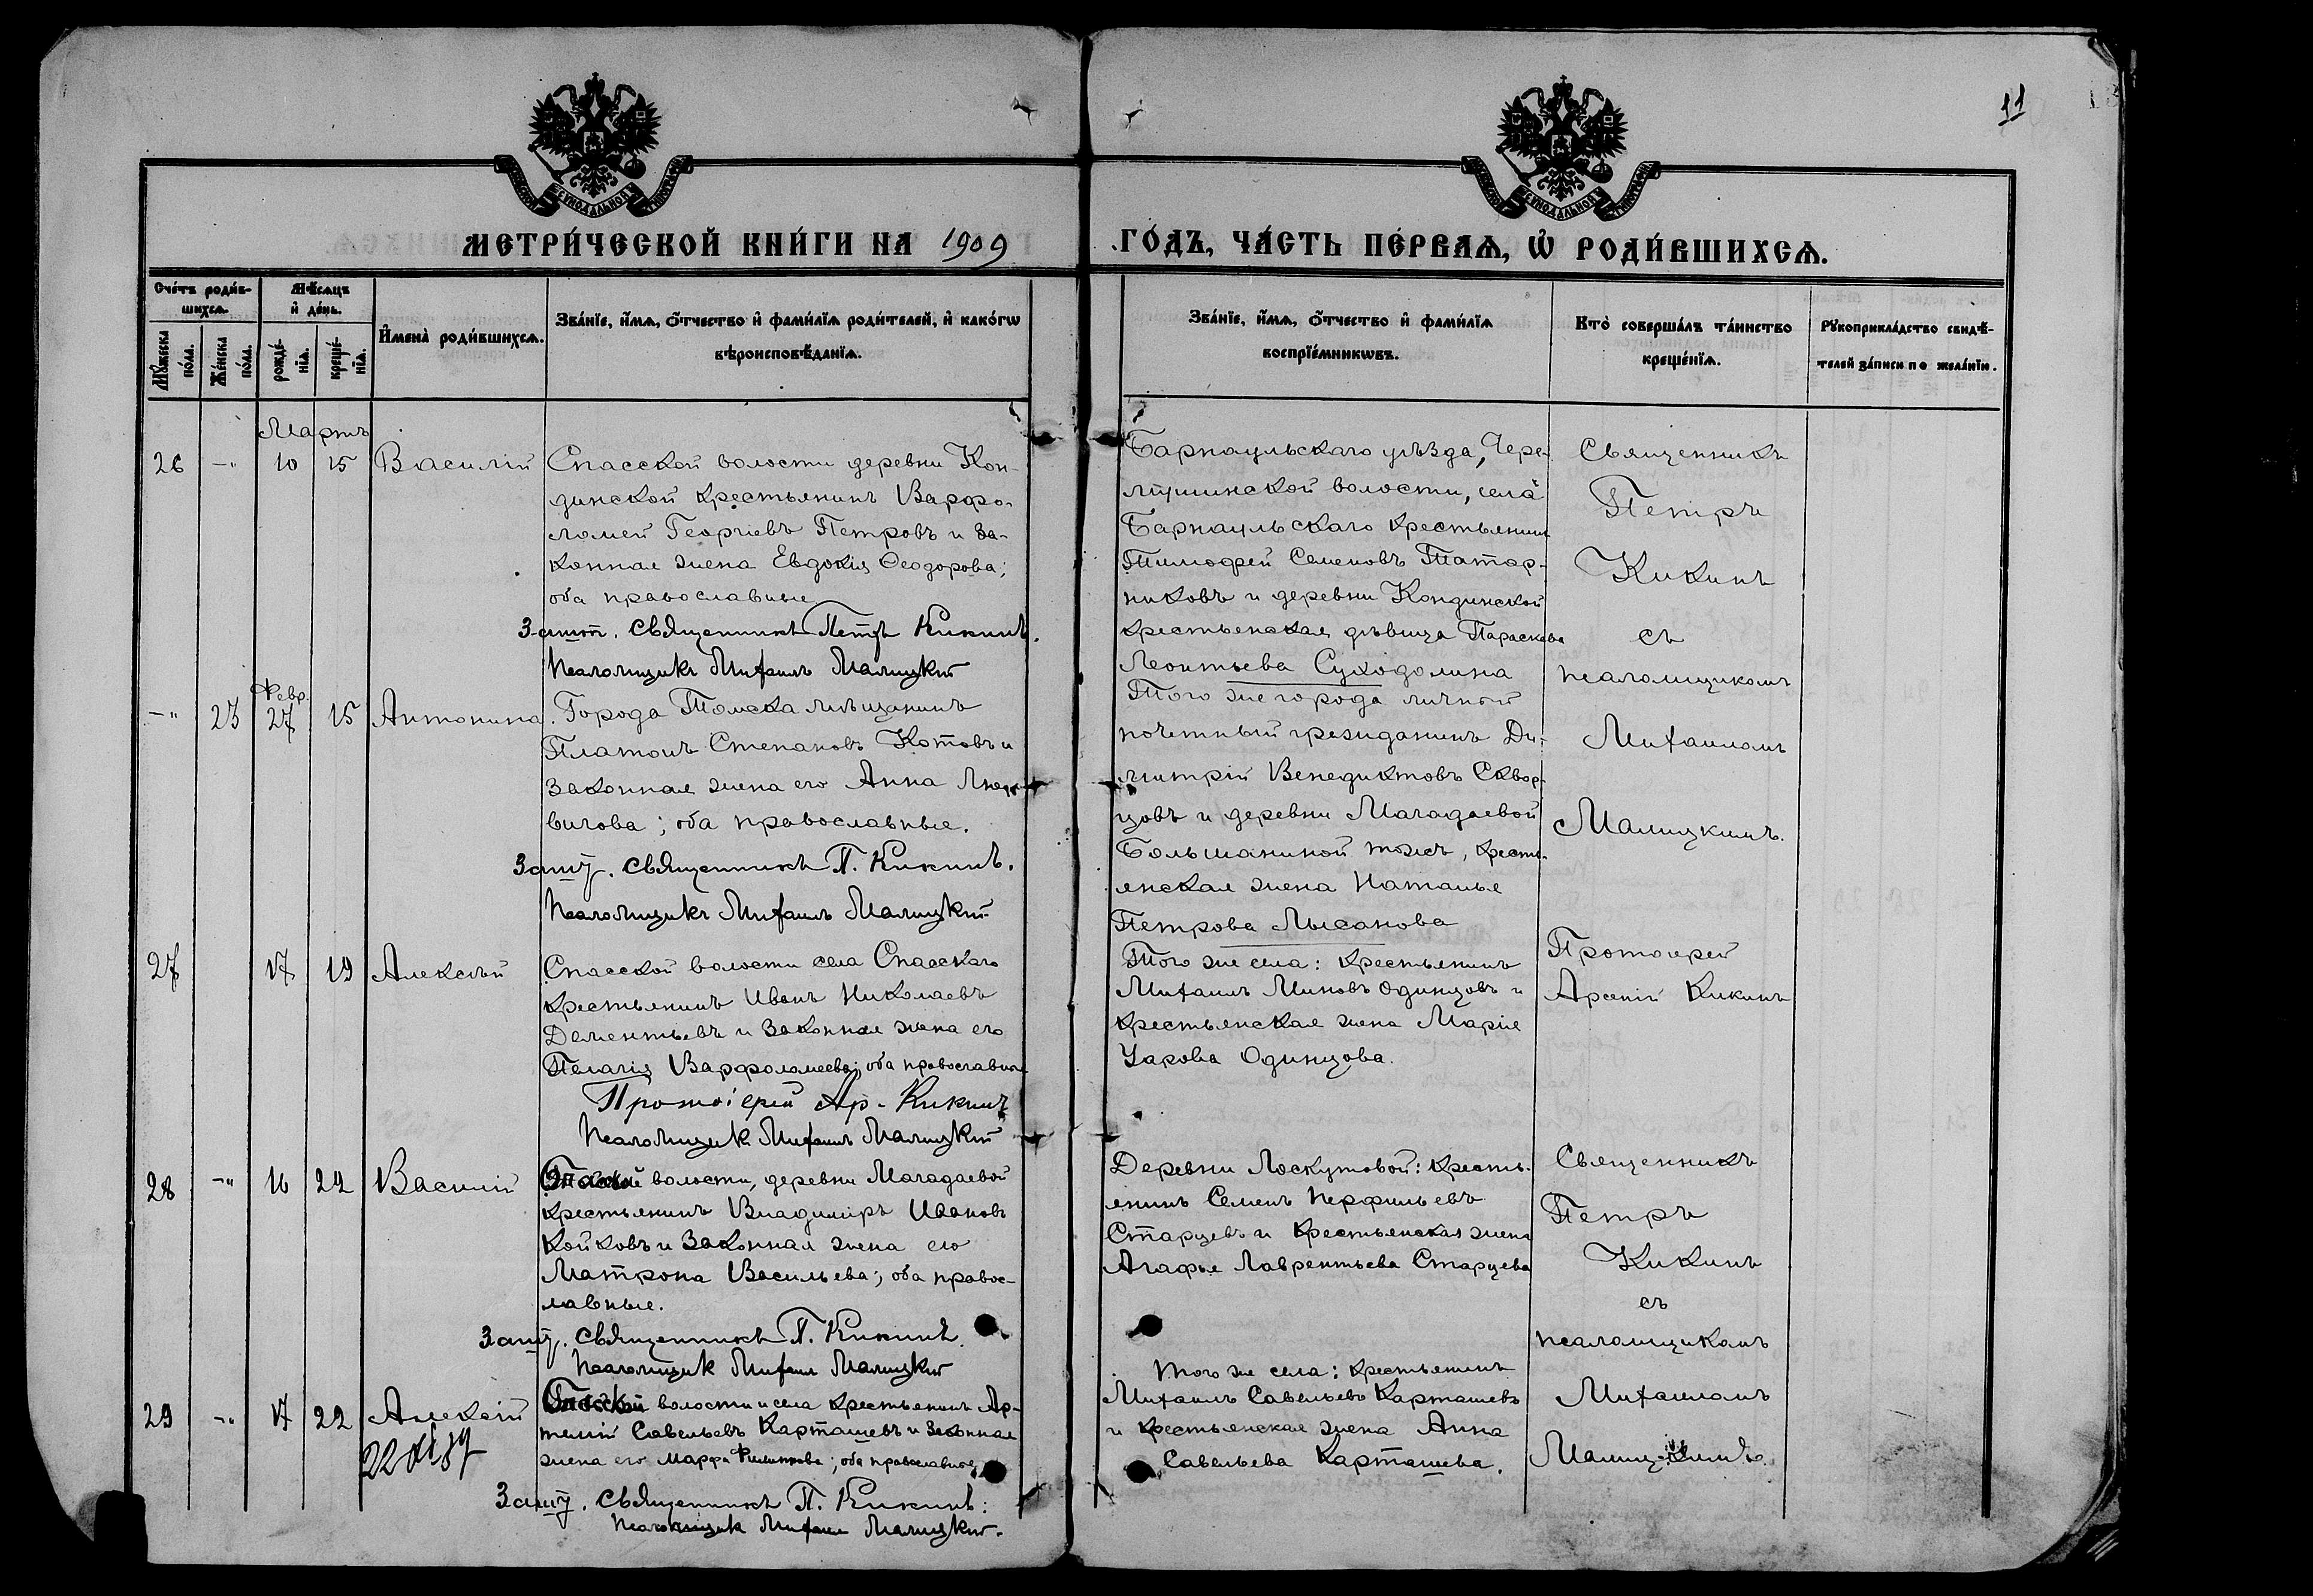 11
СѴНОДАЛЬНОЙ
СѴНОДАЛЬНОЙ
МЕТРИ́ЧЕСКОЙ КНИ́ГИ НА 1909
ГО́ДЪ, ЧА́СТЬ ПЕ́РВАѦ, Ѡ҆ РОДИ́ВШИХСѦ.
Сче́тъ роди́в-
шихсѧ.
Мꙋ́жеска
по́ла.
Же́нска
по́ла.
Мѣ́сѧцъ
и҆ де́нь.
рожде́-
нїѧ.
креще́-
нїѧ.
И҆мена̀ роди́вшихсѧ.
Зва́нїе, и҆́мѧ, ѻ҆́тчество и҆ фами́лїѧ роди́телей, и҆ како́гѡ
вѣроисповѣ́данїѧ.
Зва́нїе, и҆́мѧ, ѻ҆́тчество и҆ фами́лїѧ
воспрїе́мникѡвъ.
Кто̀ соверша́лъ та́инство
креще́нїѧ.
Рꙋкоприкла́дство свидѣ́-
телей за́писи по жела́нїю.
Мартъ
26 -" 10 15 Василій
Спасской волости деревни Кон-
динской крестьянинъ Варфо-
ломей Георгіевъ Петровъ и за-
конная жена Евдокія Ѳеодорова;
оба православные
Священникъ Петръ Кикинъ.
Псаломщикъ Михаилъ Малицкій
Барнаульскаго уѣзда, Чере-
мушинской волости, села
Барнаульскаго крестьянинъ
Тимофей Семеновъ Татар-
никовъ и деревни Кондинской
крестьянская дѣвица Параскева
Леонтьева Суходолина
Священникъ
Петръ
Кикинъ
съ
псаломщикомъ
Михаиломъ
Малицкимъ.
-" 23 Февр. 27 15 Антонина
Города Томска мѣщанинъ
Платонъ Степановъ Котовъ и
законная жена его Анна Людо-
вигова; оба православные.
Священникъ П. Кикинъ.
Псаломщикъ Михаилъ Малицкій
Того же города личный
почетный гражданинъ Ди-
митрій Венедиктовъ Сквор-
цовъ и деревни Магадаевой
крестья-
янская жена Наталья
Петрова Лысанова
27 17 19 Алексѣй
Спасской волости села Спасскаго
крестьянинъ Иванъ Николаевъ
Дементьевъ и законная жена его
Пелагія Варфоломеева; оба православные
Протоіерей Ар. Кикинъ
Псаломщикъ Михаилъ Малицкій
Того же села: крестьянинъ
Михаилъ Миновъ Одинцовъ и
крестьянская жена Марія
Уарова Одинцова.
Протоіерей
Арсеній Кикинъ
28 -" 10 22 Василій
Спасской волости, деревни Магадаевой
крестьянинъ Владиміръ Ивановъ
Койковъ и законная жена его
Матрона Васильева; оба правос-
лавные.
Священникъ П. Кикинъ.
Псаломщикъ Михаилъ Малицкій
Деревни Лоскутовой: кресть-
янинъ Семенъ Перфильевъ
Старцевъ и крестьянская жена
Агафья Лаврентьева Старцева
Священникъ
Петръ
Кикинъ
съ
псаломщикомъ
Михаиломъ
Малицкимъ.
29 -" 17 22 Алексій
Спасской волости и села крестьянинъ Ар-
темій Савельевъ Карташевъ и законная
жена его Марфа Филиппова; оба православные
Священникъ П. Кикинъ:
Псаломщикъ Михаилъ Малицкій.
Того же села: крестьянинъ
Михаилъ Савельевъ Карташевъ
и крестьянская жена Анна
Савельева Карташева.